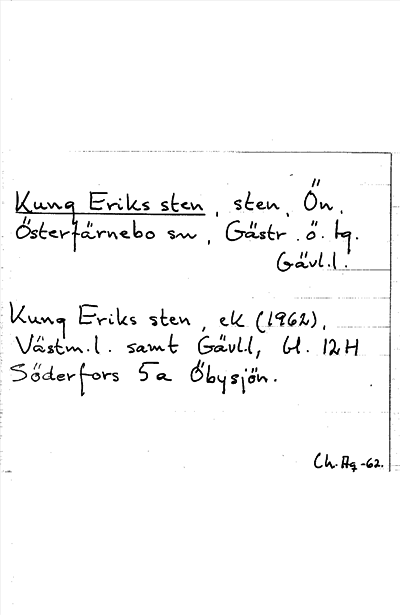 Kung Eriks sten, sten, Ön,
Österfärnebo sn, Gästr. ö. tg.
Gävl.l.
Kung Eriks sten, ek (1962),
Västm.l. samt Gävl.l, bl. 12H
Söderfors 5a Öbysjön.
Ch. Ag -62.